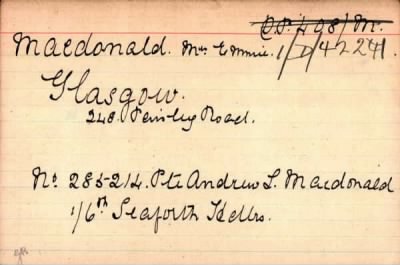 P.P. 498/M.
Macdonald. Mrs Emmie. 1/D/42241.
Glasgow.
248. Paisley Road.
No 285214. Pte Andrew L. Macdonald
1/6th Seaforth Hdrs.